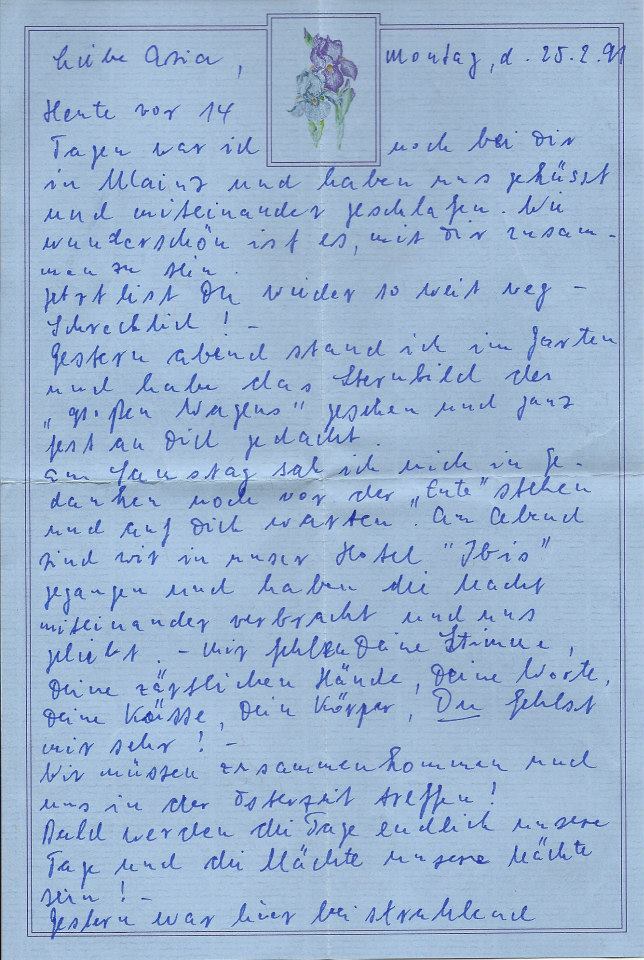 Liebe Asia,
Montag, d. 25.2.91
Heute vor 14
Tagen war ich noch bei Dir
in Mainz und haben uns geküsst
und miteinander geschlafen. Wie
wunderschön ist es, mit Dir zusam-
men zu sein.
Jetzt bist Du wieder so weit weg -
Schrecklich! -
Gestern abend stand ich im Garten
und habe das Sternbild des
"großen Wagens" gesehen und ganz
fest an Dich gedacht.
Am Samstag sah ich mich in Ge-
danken noch vor der "Ente" stehen
und auf Dich warten. Am Abend
sind wir in unser Hotel "Ibis"
gegangen und haben die Nacht
miteinander verbracht und uns
geliebt. - Mir fehlen Deine Stimme,
Deine zärtlichen Hände, Deine Worte,
Deine Küsse, Dein Körper, Du fehlst
mir sehr! -
Wir müssen zusammenkommen und
uns in der Osterzeit treffen!
Bald werden die Tage endlich unsere
Tage und die Nächte unsere Nächte
sein! -
Gestern war hier bei strahlend